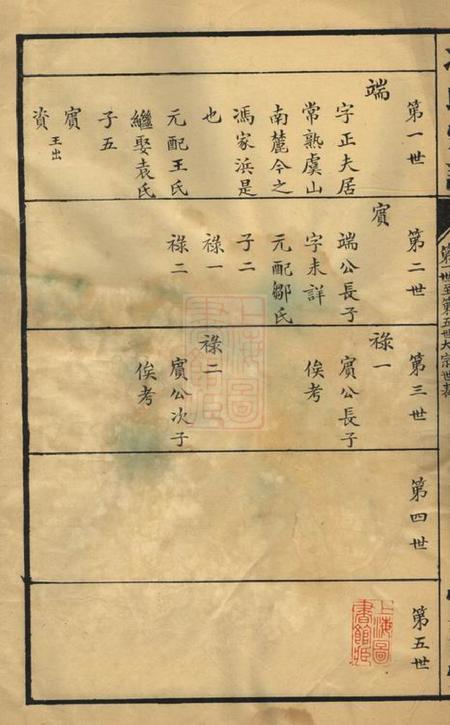 第一世
端
字正夫居
常熟虞山
南麓今之
馮家浜是
也
元配王氏
繼娶袁氏
子五
賓王出
資
第二世
賓
端公長子
字未詳
元配鄒氏
子二
祿一
祿二
第三世
祿一
賓公長子
俟考
祿二
賓公次子
俟考
第四世
第五世
第一世至第五世大宗世表
上海圖書館藏
上海圖書館藏